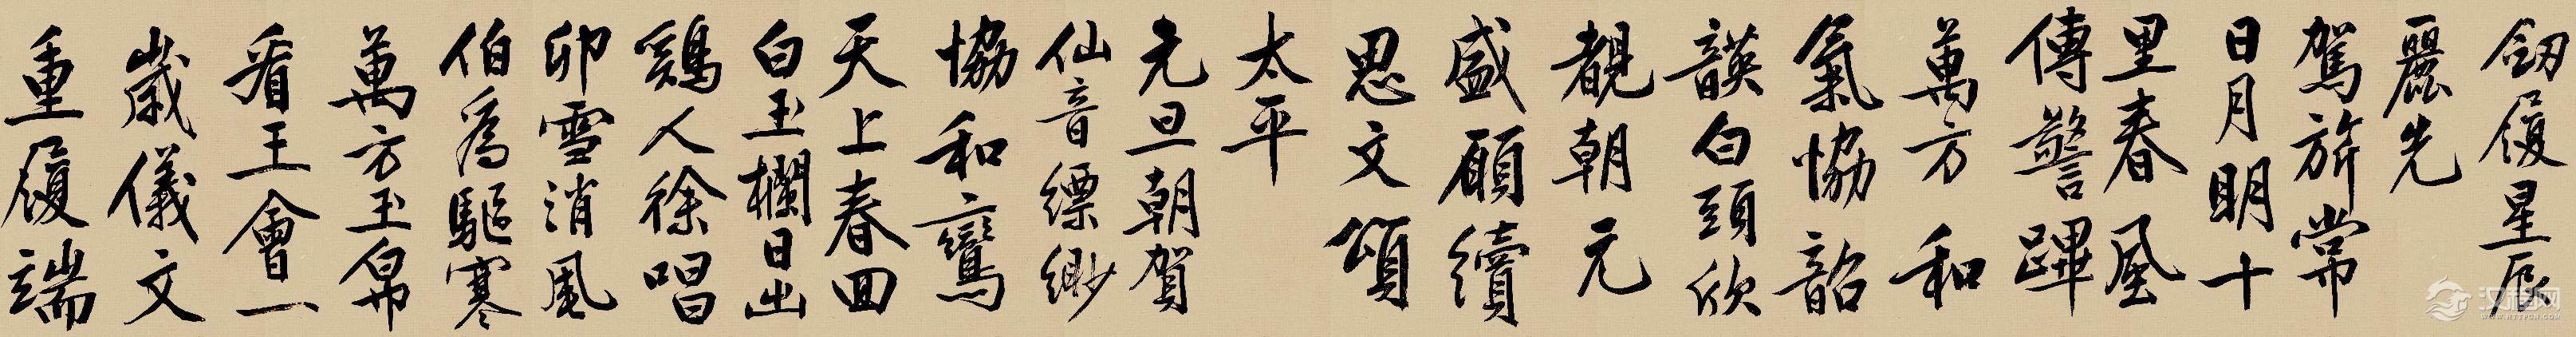 釼履星辰
麗先
駕旂常
日月明十
里春風
傳警蹕
萬方和
氣協韶
韺白頭欣
覩朝元
盛願續
思文頌
太平
元旦朝賀
仙音縹緲
協和鸞
天上春回
白玉欄日出
鷄人徐唱
卯雪消風
伯為驅寒
萬方玉帛
看王會一
歲儀文
重履端
汉程网
WWW.HTTPCN.COM